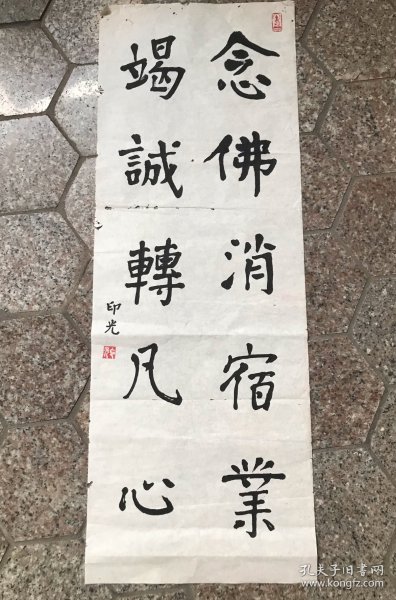 念佛消宿業
竭誠轉凡心
印光
孔夫子旧书网
www.kongfz.com